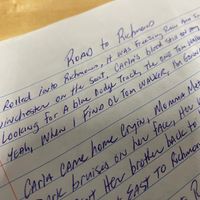 Road to Richmond
Rolled into Richmond, it was freezing rain and
Winchester on the seat, Carla's blood still on my
Looking for a blue Dodge Truck, the one Tom Walker
Yeah, when I find ol Tom Walker, I'm gonna
Carla came home cryin, Momma met
Dark bruises on her face, Her
Her brother back to
East to Richmond